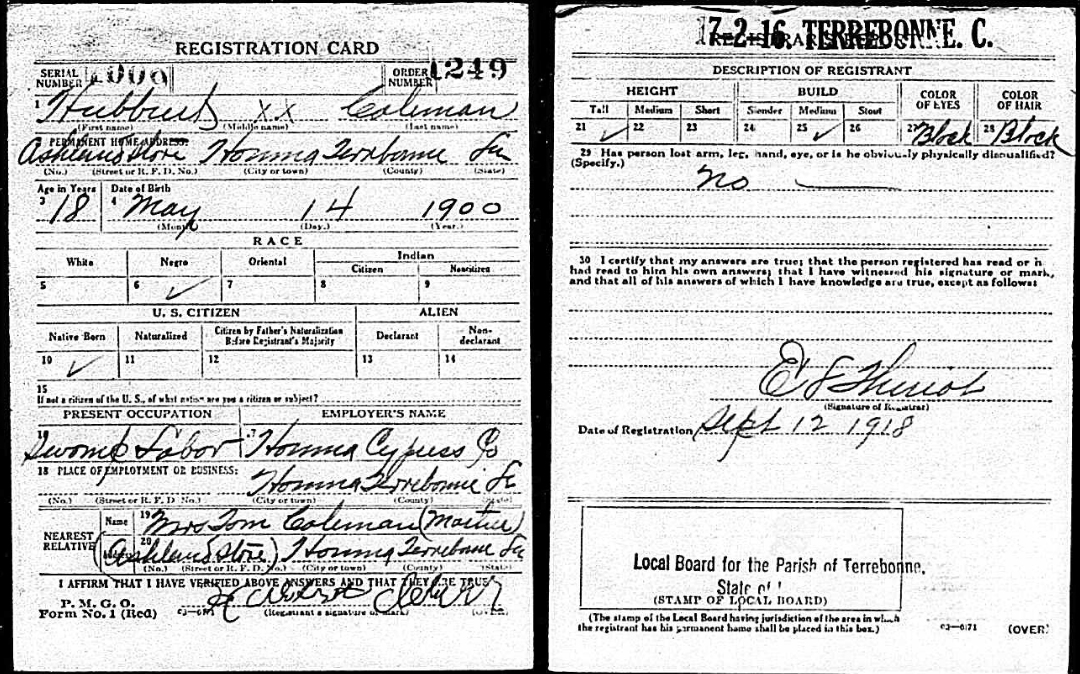 REGISTRATION CARD
SERIAL NUMBER ORDER NUMBER 1249
1 XX Coleman
(First name) (Middle name) (Last name)
PERMANENT HOME ADDRESS:
Ashland Store Houma Terrebonne La
(No.) (Street or R. F. D. No.) (City or town) (County) (State)
Age in Years Date of Birth
3 18 4 May 14 1900
(Month) (Day.) (Year.)
RACE
White Negro Oriental Indian
Citizen Noncitizen
5 6 ✓ 7 8 9
U. S. CITIZEN ALIEN
Native Born Naturalized Citizen by Father's Naturalization Before Registrant's Majority Declarant Non-declarant
10 ✓ 11 12 13 14
15
If not a citizen of the U. S., of what nation are you a citizen or subject?
PRESENT OCCUPATION EMPLOYER'S NAME
16 Swomp Labor 17 Houma Cypress Co
18 PLACE OF EMPLOYMENT OR BUSINESS:
Houma Terrebonne La
(No.) (Street or R. F. D. No.) (City or town) (County) (State)
NEAREST RELATIVE Name 19 Mrs Tom Coleman
Address 20 (Ashland Store) Houma Terrebonne La
(No.) (Street or R. F. D. No.) (City or town) (County) (State)
I AFFIRM THAT I HAVE VERIFIED ABOVE ANSWERS AND THAT THEY ARE TRUE
P. M. G. O.
Form No. 1 (Red) 03—6171 (Registrant's signature or mark) (OVER)
17-2-16. TERREBONNE. C.
REGISTRAR'S REPORT
DESCRIPTION OF REGISTRANT
HEIGHT BUILD COLOR OF EYES COLOR OF HAIR
Tall Medium Short Slender Medium Stout
21 ✓ 22 23 24 25 ✓ 26 27 Black 28 Black
29 Has person lost arm, leg, hand, eye, or is he obviously physically disqualified?
(Specify.) No
30 I certify that my answers are true; that the person registered has read or h
had read to him his own answers; that I have witnessed his signature or mark,
and that all of his answers of which I have knowledge are true, except as follows:
E J Theriot
(Signature of Registrar)
Date of Registration Sept 12 1918
Local Board for the Parish of Terrebonne,
State of
(STAMP OF LOCAL BOARD)
(The stamp of the Local Board having jurisdiction of the area in which
the registrant has his permanent home shall be placed in this box.) 03—6171 (OVER)